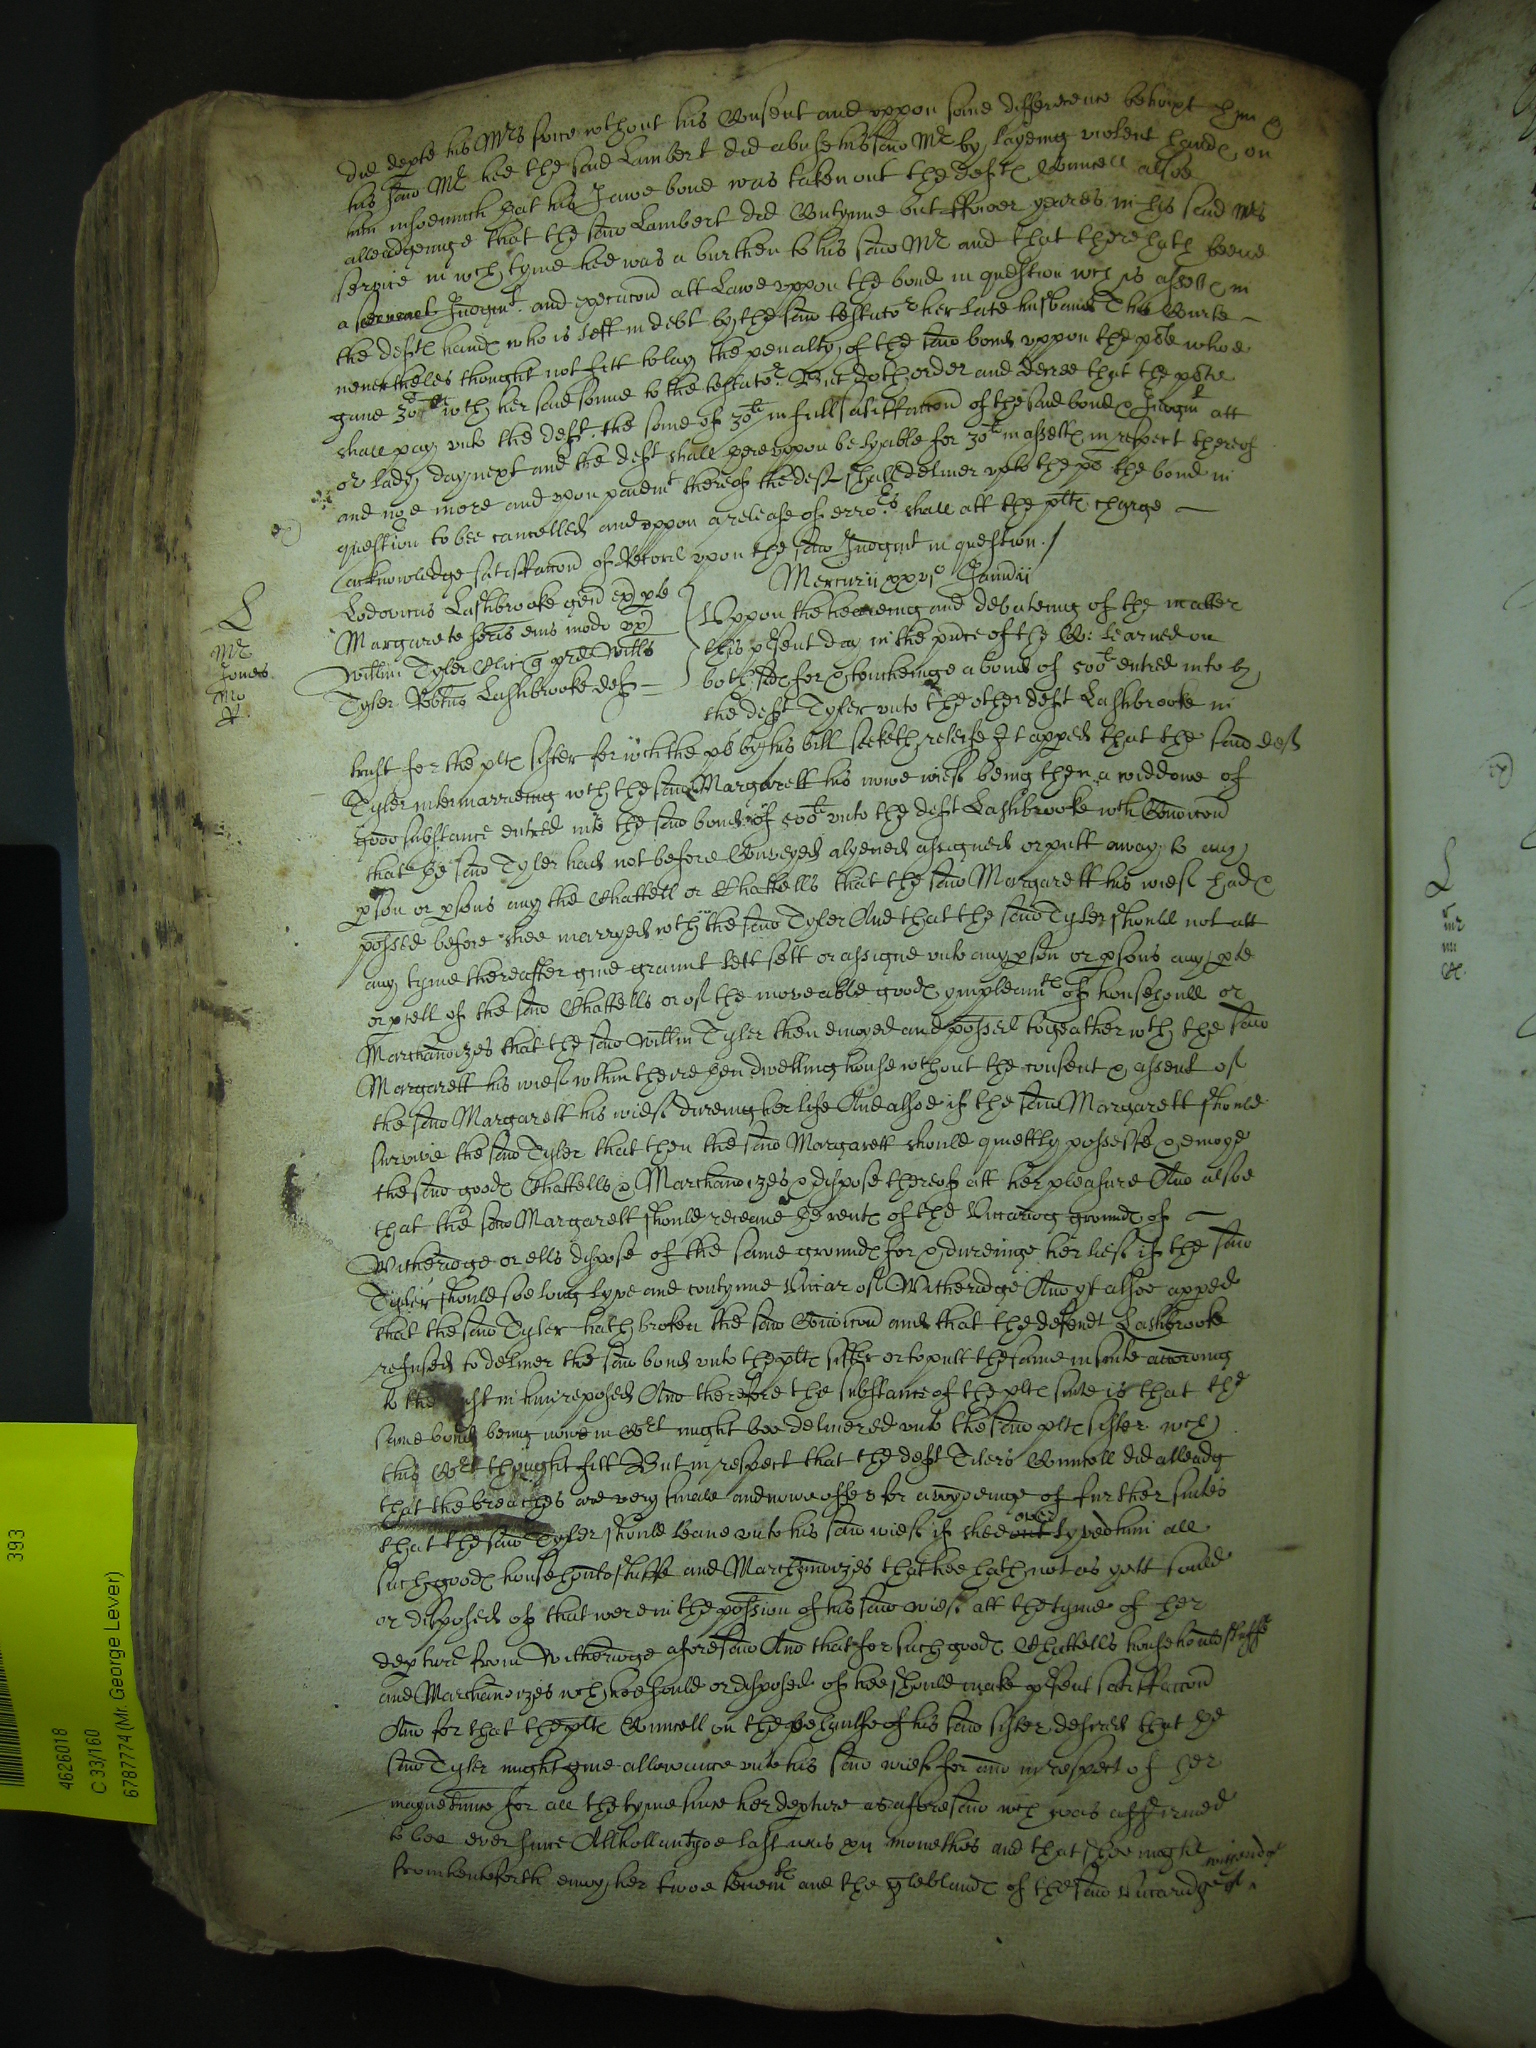 did depte his Mrs svice wthout his Consent and vppon some difference betwixt him &
his said Mr hee the said Lambert did abuse his said Mr by layeing violent hands on
him insoemuch that his Jawe bone was taken out the defts Councell alsoe
alleadgeinge that the said Lambert did Contynue but fower yeares in his said Mrs
service in wch tyme hee was a burthen to his said Mr and that there hath beene
a Judgmt and execucon att Lawe vppon the bond in question wch is assetts in
the defts hands who is left in debt by the said testator her late husband This Courte
neuertheles thought not fitt to lay the penalty of the said bond vppon the plte whoe
gaue 30li wth her said sonne to the testator But doth order and decree that the plte
shall pay vnto the deft the some of 30li in full satisfaccon of the said bond & Judgmt att
or lady day next and the deft shall herevppon be lyable for 30li in assetts in respect thereof
and noe more and vpon paiemt thereof the deft shall deliuer vpto the plt the bond in
question to bee cancelled and vppon a release of errors shall att the plts charge
acknowledge satisfaccon of Record vpon the said Judgmt in question /
Mercurii xxvio Januarii
L
Mr
Jones
Lodovicus Lashbrooke gen ex pte
Margarete sororis eius modo vx
Willmi Tyler Clici q pred Wills
Tyler Robtus Lashbrooke def
Vppon the heareing and debateing of the matter
this psent day in the pnce of the Co: learned on
both sides for & touchinge a bond of 500li entred into by
the deft Tyler vnto the other deft Lashbrooke in
trust for the plts sister for wch the plt by his bill seeketh releife It appered that the said deft
Tyler intermarrieng wth the said Margarett his nowe wief being then a widdowe of
good substance entred into the said bond of 500li vnto the deft Lashbrooke wth Condicon
that he said Tyler had not before Conveyed alyened assigned or putt away to any
pson or psons any the Chattell or Chattells that the said Margarett his wief had &
possed before shee marryed wth the said Tyler And that the said Tyler should not att
any tyme thereafter giue graunt lett sett or assigne vnto any pson or psons any pte
or pcell of the said Chattells or of the moveable goods ympleamts of household or
Marchandizes that the said Willm Tyler then enioyed and possed togeather wth the said
Margarett his wief wthin theire then dwelling house wthout the consent & assent of
the said Margarett his wief dureing her life And alsoe if the said Margarett should
survive the said Tyler that then the said Margarett should quiettly possesse & enioye
the said goods Chattells & Marchandizes & dispose thereof att her pleasure And alsoe
that the said Margarett should receaue the rents of the Viccaridg grounds of
Witheridge or ells dispose of the same grounds for & dureinge her lief if the said
Tyler should soe long lyve and contynue Vicar of Witheridge And yt alsoe appered
that the said Tyler hath broken the said Condicon and that the defendt Lashbrooke
refused to deliuer the said bond vnto the plts sister or to putt the same in suite according
to the in him reposed And therefore the substance of the plts suite is that the
same bond being nowe in Cort might bee deliuered vnto the said plts sister wch
this Cort thought fitt But in respect that the deft Tilers Councell did alleadg
that the breaches are very smale and nowe offers for avoydeinge of further suites
that the said Tyler should leaue vnto his said wief if shee over lyved him all
such goods household stuffe and Marchandizes that hee hath not as yett sould
or disposed of that were in the possion of his said wief att the tyme of her
depture from Witheridge aforesaid And that for such goods Chattells household stuffe
and Marchandizes wch hee sould or disposed of hee should make psent satisfaccon
And for that the plts Councell on the behaulfe of his said sister desired that the
said Tyler might giue allowance vnto his said wief for and in respect of her
mayntennce for all the tyme since her depture as aforesaid wch was affirmed
to bee ever since Allhollantyde last was xii monethes and that shee might
from henceforth enioy her twoe tenemts and the glebland of the said Vicaridge
393
4626018
C 33/160
6787774 (Mr. George Lever)